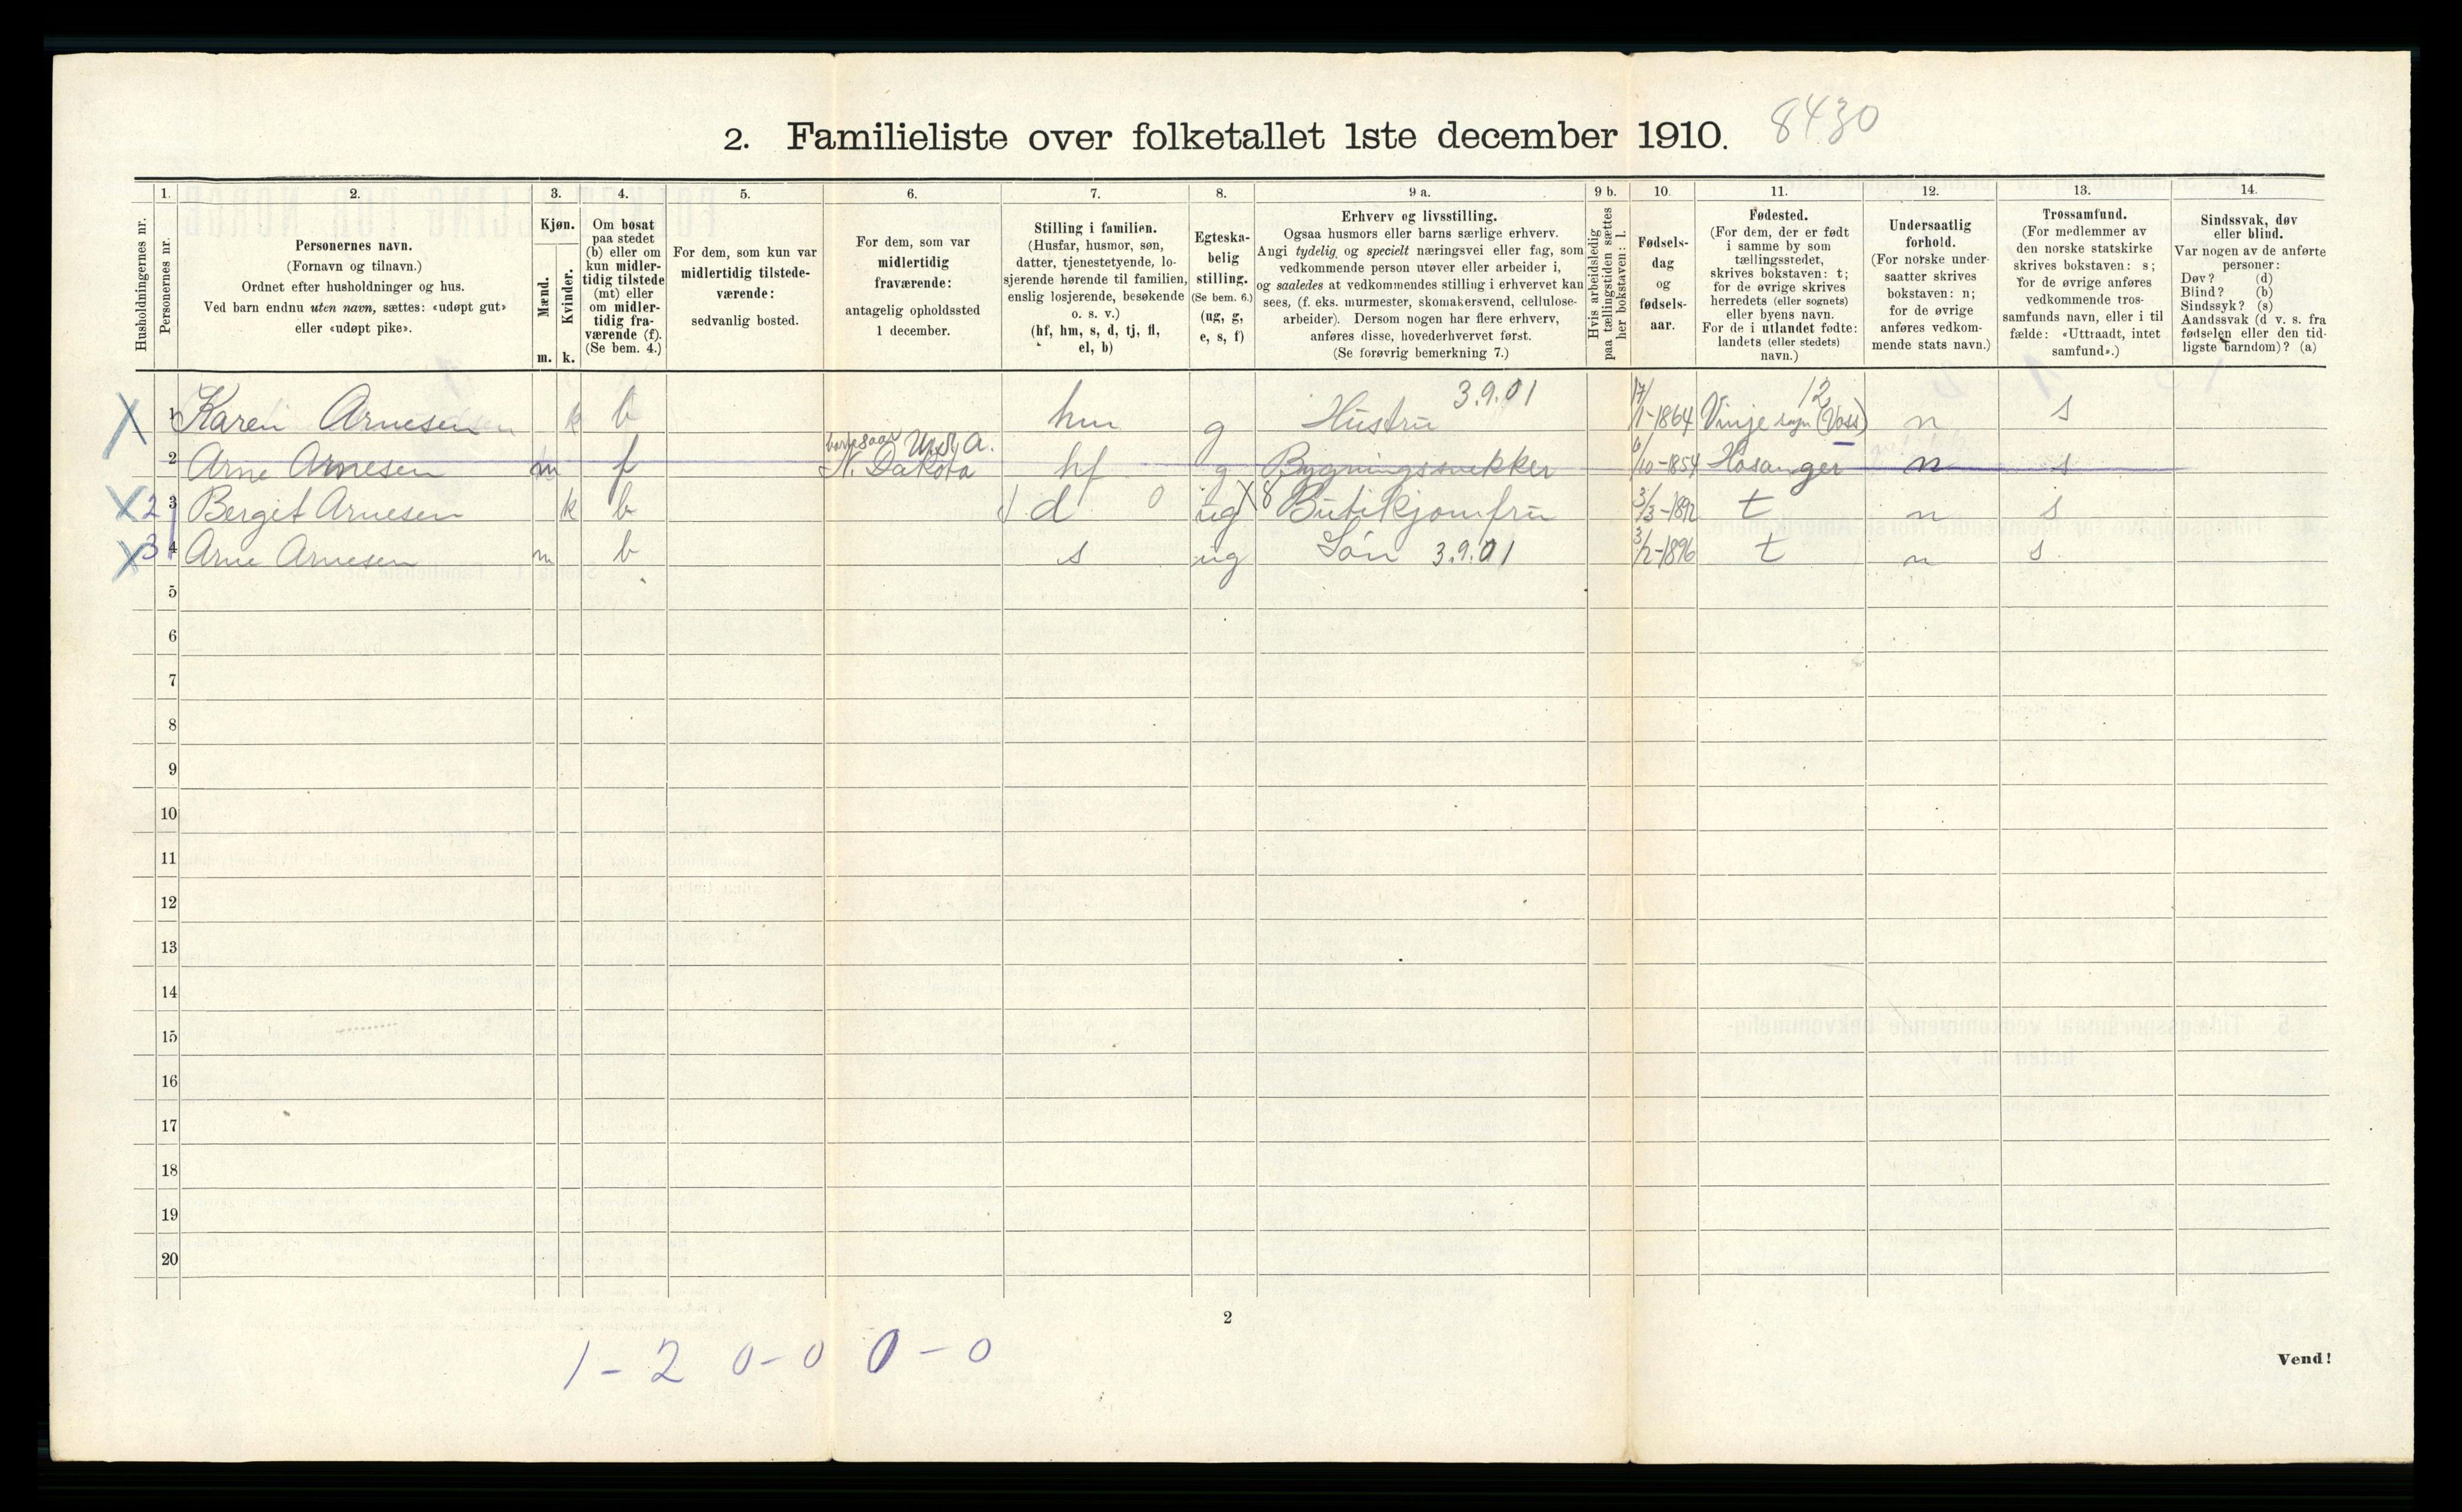 2. Familieliste over folketallet 1ste december 1910. 8430
Husholdningernes nr.
1. Personernes nr.
2. Personernes navn.
(Fornavn og tilnavn.)
Ordnet efter husholdninger og hus.
Ved barn endnu uten navn, sættes: «udøpt gut»
eller «udøpt pike».
3. Kjøn.
Mænd. m.
Kvinder. k.
4. Om bosat
paa stedet
(b) eller om
kun midler-
tidig tilstede
(mt) eller
om midler-
tidig fra-
værende (f).
(Se bem. 4.)
5. For dem, som kun var
midlertidig tilstede-
værende:
sedvanlig bosted.
6. For dem, som var
midlertidig
fraværende:
antagelig opholdssted
1 december.
7. Stilling i familien.
(Husfar, husmor, søn,
datter, tjenestetyende, lo-
sjerende hørende til familien,
enslig losjerende, besøkende
o. s. v.)
(hf, hm, s, d, tj, fl,
el, b)
8. Egteska-
belig
stilling.
(Se bem. 6.)
(ug, g,
e, s, f)
9 a. Erhverv og livsstilling.
Ogsaa husmors eller barns særlige erhverv.
Angi tydelig og specielt næringsvei eller fag, som
vedkommende person utøver eller arbeider i,
og saaledes at vedkommendes stilling i erhvervet kan
sees, (f. eks. murmester, skomakersvend, cellulose-
arbeider). Dersom nogen har flere erhverv,
anføres disse, hovederhvervet først.
(Se forøvrig bemerkning 7.)
9 b. Hvis arbeidsledig
paa tællingstiden sættes
her bokstaven: l.
10. Fødsels-
dag
og
fødsels-
aar.
11. Fødested.
(For dem, der er født
i samme by som
tællingsstedet,
skrives bokstaven: t;
for de øvrige skrives
herredets (eller sognets)
eller byens navn.
For de i utlandet fødte:
landets (eller stedets)
navn.)
12. Undersaatlig
forhold.
(For norske under-
saatter skrives
bokstaven: n;
for de øvrige
anføres vedkom-
mende stats navn.)
13. Trossamfund.
(For medlemmer av
den norske statskirke
skrives bokstaven: s;
for de øvrige anføres
vedkommende tros-
samfunds navn, eller i til
fælde: «Uttraadt, intet
samfund».)
14. Sindssvak, døv
eller blind.
Var nogen av de anførte
personer:
Døv? (d)
Blind? (b)
Sindssyk? (s)
Aandssvak (d v. s. fra
fødselen eller den tid-
ligste barndom)? (a)
X 1 Karen Arnesen k b hm g Hustru 3.9.01 17/1-1864 Vinje sogn (Voss) 12 n s
2 Arne Arnesen m f U.S.A. N. Dakota hf g Bygningssnekker 6/10-1854 Hosanger n s
X 2 3 Berget Arnesen k b d 0 ug X8 Butikjomfru 3/3-1892 t n s
X 3 4 Arne Arnesen m b s ug Søn 3.9.01 3/2-1896 t n s
5
6
7
8
9
10
11
12
13
14
15
16
17
18
19
20
2
1-2 0-0 0-0
Vend!